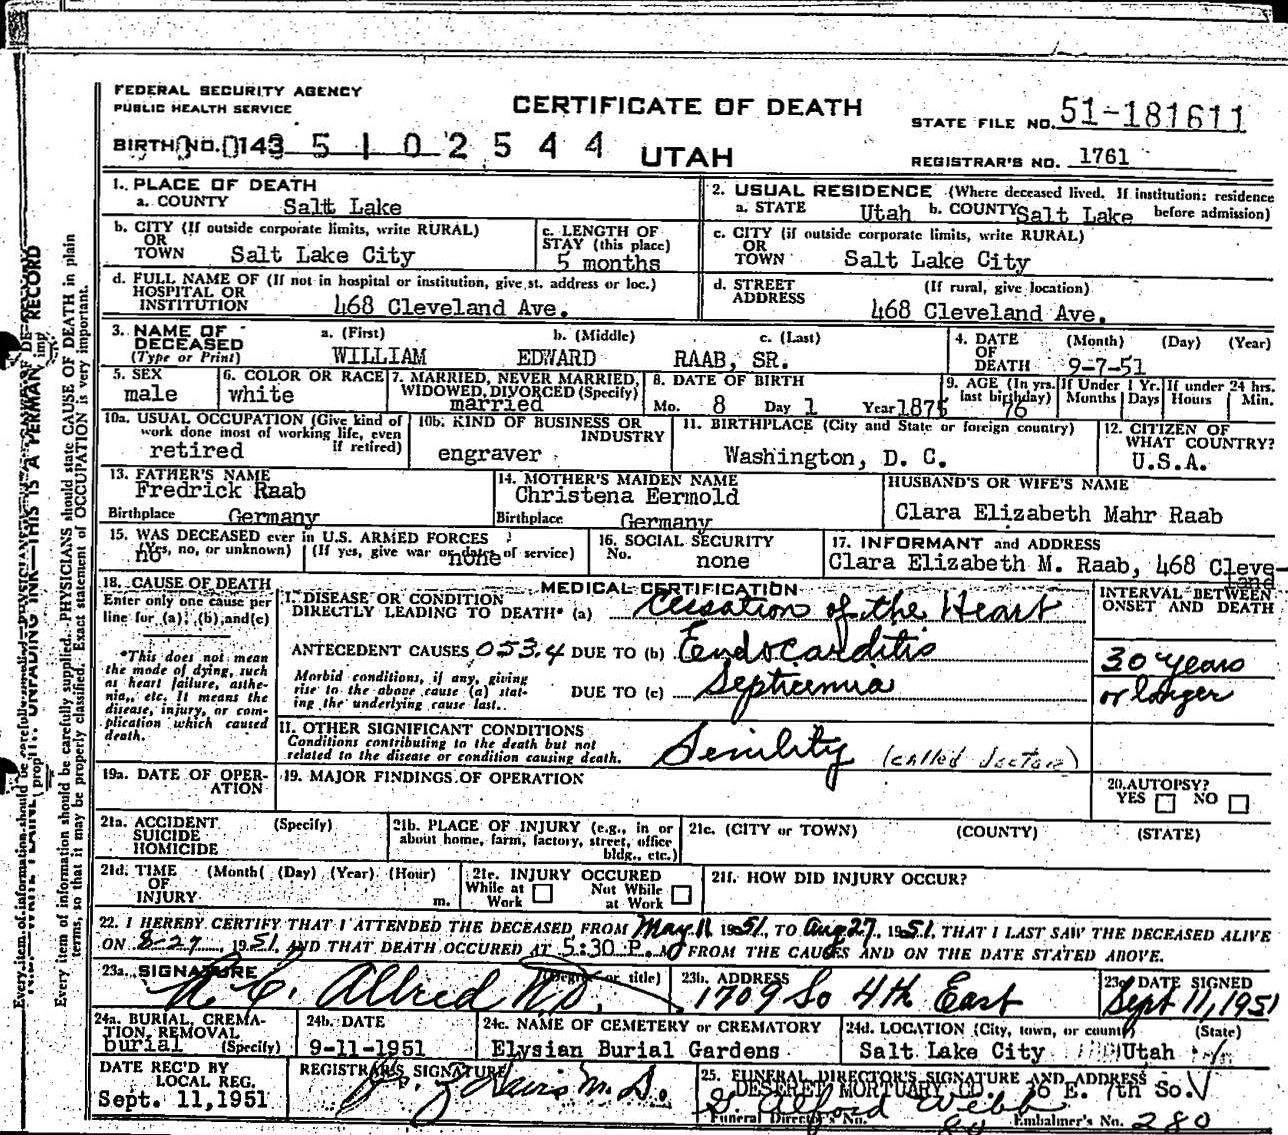 FEDERAL SECURITY AGENCY
PUBLIC HEALTH SERVICE
CERTIFICATE OF DEATH
STATE FILE NO. 51-181611
BIRTH NO. 143 5102544 UTAH
REGISTRAR'S NO. 1761
1. PLACE OF DEATH
a. COUNTY Salt Lake
2. USUAL RESIDENCE (Where deceased lived. If institution: residence before admission)
a. STATE Utah b. COUNTY Salt Lake
b. CITY (If outside corporate limits, write RURAL)
OR
TOWN Salt Lake City
c. LENGTH OF
STAY (this place)
5 months
c. CITY (if outside corporate limits, write RURAL)
OR
TOWN Salt Lake City
d. FULL NAME OF (If not in hospital or institution, give st. address or loc.)
HOSPITAL OR
INSTITUTION 468 Cleveland Ave.
d. STREET (If rural, give location)
ADDRESS 468 Cleveland Ave.
3. NAME OF
DECEASED
(Type or Print)
a. (First) b. (Middle) c. (Last)
WILLIAM EDWARD RAAB, SR.
4. DATE (Month) (Day) (Year)
OF
DEATH 9-7-51
5. SEX
male
6. COLOR OR RACE
white
7. MARRIED, NEVER MARRIED,
WIDOWED, DIVORCED (Specify)
married
8. DATE OF BIRTH
Mo. 8 Day 1 Year 1875
9. AGE (In yrs. last birthday)
76
If Under 1 Yr.
Months Days
If under 24 hrs.
Hours Min.
10a. USUAL OCCUPATION (Give kind of
work done most of working life, even
if retired)
retired
10b. KIND OF BUSINESS OR
INDUSTRY
engraver
11. BIRTHPLACE (City and State or foreign country)
Washington, D. C.
12. CITIZEN OF
WHAT COUNTRY?
U.S.A.
13. FATHER'S NAME
Fredrick Raab
Birthplace Germany
14. MOTHER'S MAIDEN NAME
Christena Eermold
Birthplace Germany
HUSBAND'S OR WIFE'S NAME
Clara Elizabeth Mahr Raab
15. WAS DECEASED ever in U.S. ARMED FORCES ?
(Yes, no, or unknown) (If yes, give war or dates of service)
no none
16. SOCIAL SECURITY
No. none
17. INFORMANT and ADDRESS
Clara Elizabeth M. Raab, 468 Cleve-
land
18. CAUSE OF DEATH
Enter only one cause per
line for (a), (b), and (c)
*This does not mean
the mode of dying, such
as heart failure, asthe-
nia, etc. It means the
disease, injury, or com-
plication which caused
death.
MEDICAL CERTIFICATION
I. DISEASE OR CONDITION
DIRECTLY LEADING TO DEATH* (a) Cessation of the Heart
ANTECEDENT CAUSES 053.4 DUE TO (b) Endocarditis
Morbid conditions, if any, giving
rise to the above cause (a) stat-
ing the underlying cause last.
DUE TO (c) Septicemia
INTERVAL BETWEEN
ONSET AND DEATH
30 years
or longer
II. OTHER SIGNIFICANT CONDITIONS
Conditions contributing to the death but not
related to the disease or condition causing death.
Senility (called doctor)
19a. DATE OF OPER-
ATION
19. MAJOR FINDINGS OF OPERATION
20. AUTOPSY?
YES NO
21a. ACCIDENT (Specify)
SUICIDE
HOMICIDE
21b. PLACE OF INJURY (e.g., in or
about home, farm, factory, street, office
bldg., etc.)
21c. (CITY or TOWN) (COUNTY) (STATE)
21d. TIME (Month) (Day) (Year) (Hour)
OF
INJURY m.
21e. INJURY OCCURED
While at Work Not While at Work
21f. HOW DID INJURY OCCUR?
22. I HEREBY CERTIFY THAT I ATTENDED THE DECEASED FROM May 11 1951, TO Aug 27, 1951, THAT I LAST SAW THE DECEASED ALIVE
ON 8-27, 1951, AND THAT DEATH OCCURED AT 5:30 P. M FROM THE CAUSES AND ON THE DATE STATED ABOVE.
23a. SIGNATURE (Degree or title)
Allred M.D.
23b. ADDRESS
1709 So 4th East
23c. DATE SIGNED
Sept 11, 1951
24a. BURIAL, CREMA-
TION, REMOVAL
burial (Specify)
24b. DATE
9-11-1951
24c. NAME OF CEMETERY or CREMATORY
Elysian Burial Gardens
24d. LOCATION (City, town, or county) (State)
Salt Lake City Utah
DATE REC'D BY
LOCAL REG.
Sept. 11, 1951
REGISTRAR'S SIGNATURE
M. D.
25. FUNERAL DIRECTOR'S SIGNATURE AND ADDRESS
DESERET MORTUARY CO. 36 E. 7th So.
Webb
Funeral Director's No. 80 Embalmer's No. 280
Every item of information should be carefully supplied. PHYSICIANS should state CAUSE OF DEATH in plain
terms, so that it may be properly classified. Exact statement of OCCUPATION is very important.